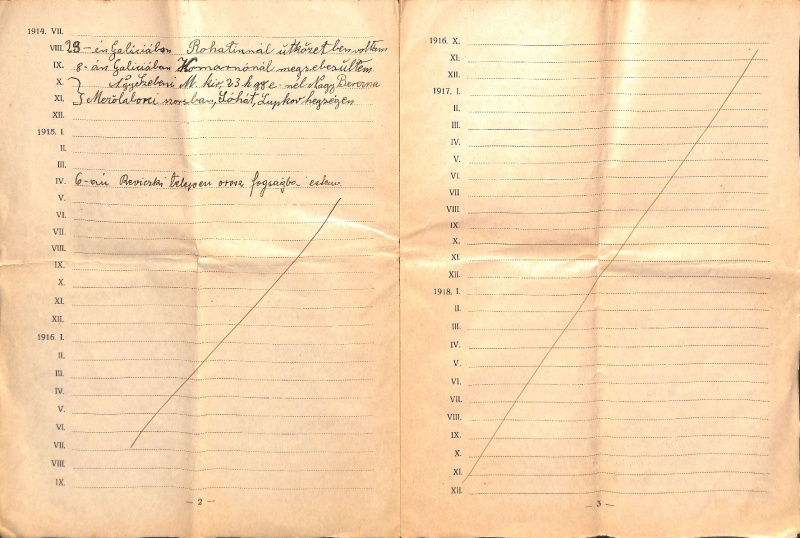 1914. VII.
VIII. 28-én Galíciában Rohatinnál ütközetben voltam
IX. 8-án Galíciában Komarnónál megsebesültem
X. Nagyszebeni M. kir. 23 h gye. nél Nagy Berezna
XI. Mezőlaborci szorosban, Sóhát, Lupkov hegségen
XII.
1915. I.
II.
III.
IV. 6-án Reviczki telepen orosz fogságba estem.
V.
VI.
VII.
VIII.
IX.
X.
XI.
XII.
1916. I.
II.
III.
IV.
V.
VI.
VII.
VIII.
IX.
— 2 —
1916. X.
XI.
XII.
1917. I.
II.
III.
IV.
V.
VI.
VII
VIII
IX.
X.
XI.
XII.
1918. I.
II.
III.
IV.
V.
VI.
VII.
VIII.
IX.
X.
XI.
XII.
— 3 —